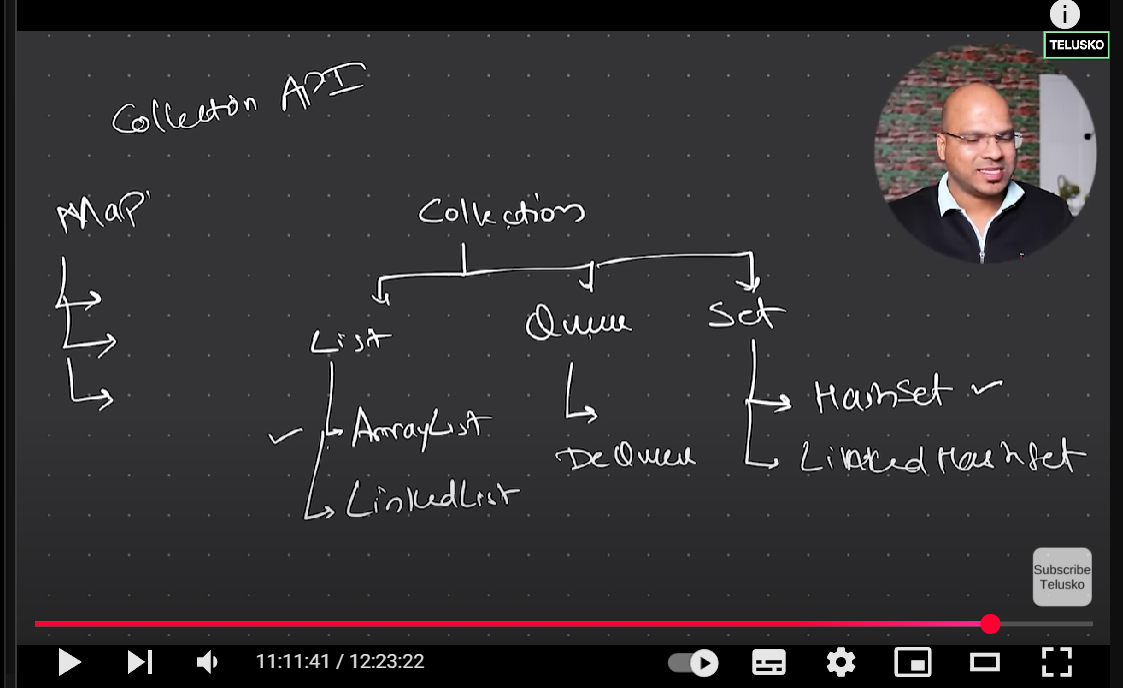 i
TELUSKO
Collection API
Map
Collection
List
Queue
Set
ArrayList
LinkedList
DeQueue
HashSet
LinkedHashSet
Subscribe
Telusko
11:11:41 / 12:23:22